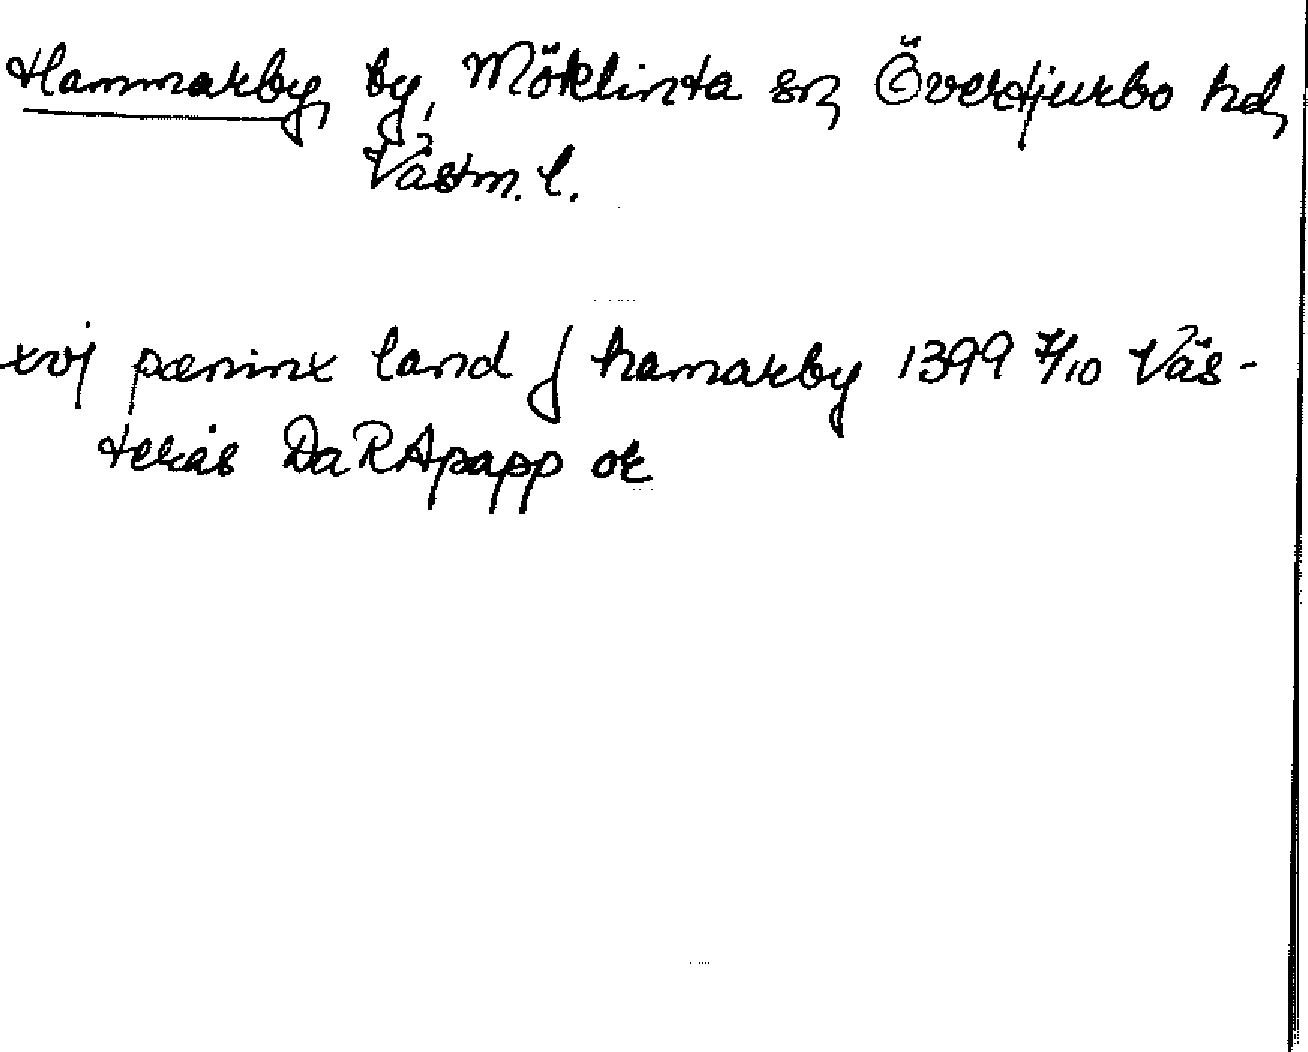 Hammarby, by, Möklinta sn, Övertjurbo hd,
Västm. l.
xvj pæninx land j hamarby 1399 7/10 Väs-
terås DaRApapp or